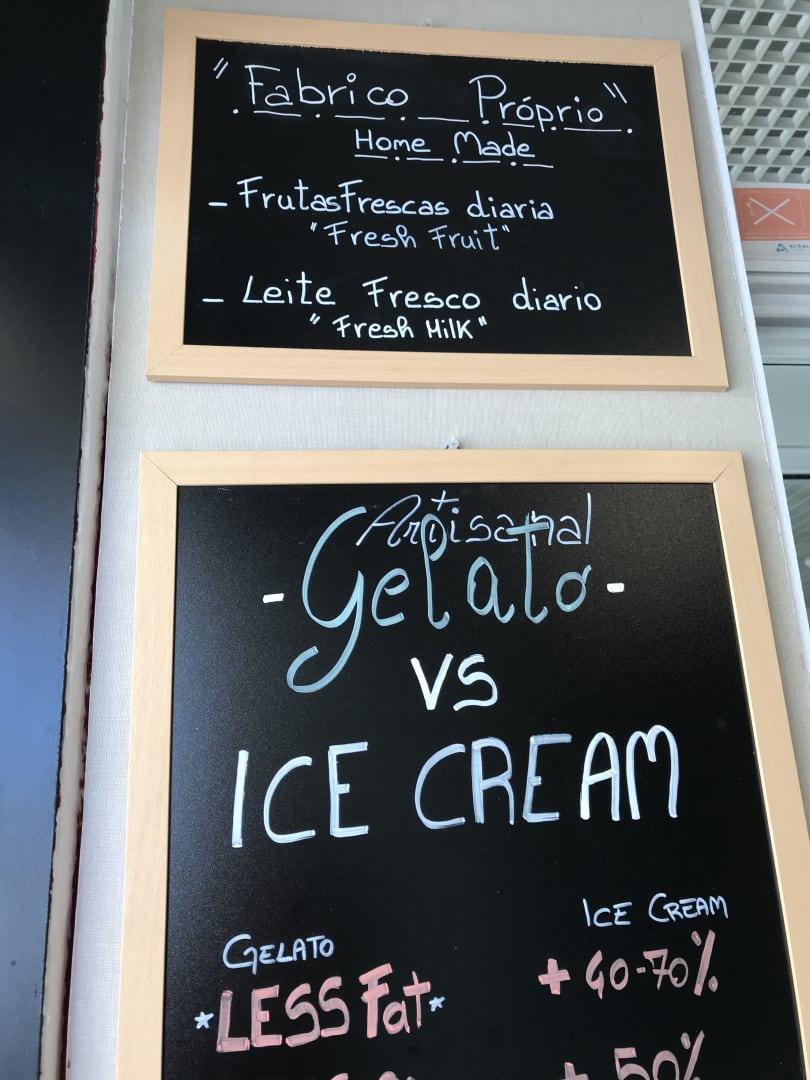 "Fabrico Próprio"
Home Made
- Frutas Frescas diaria
"Fresh Fruit"
- Leite Fresco diario
"Fresh Milk"
Artisanal
- Gelato -
VS
ICE CREAM
GELATO
ICE CREAM
*LESS Fat*
+ 40-70%
+ 50%